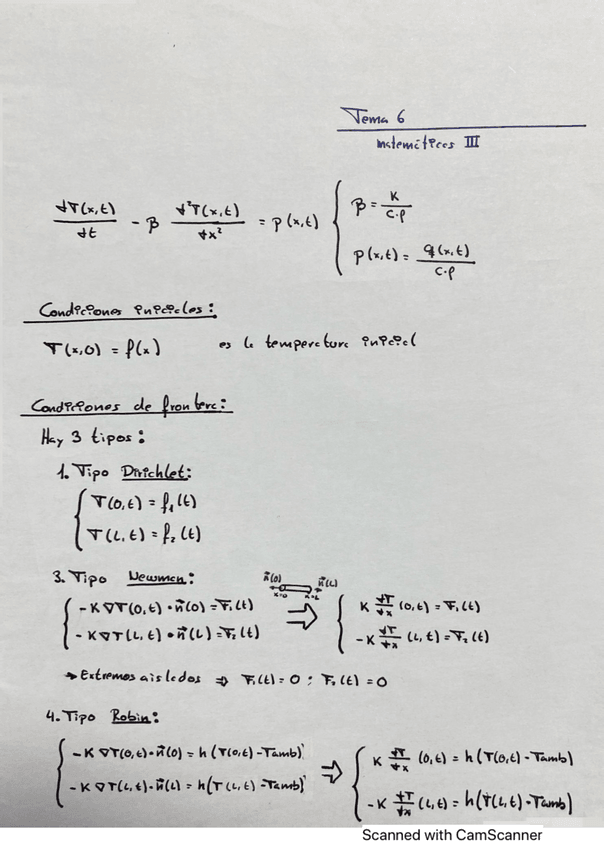 Tema 6
Matemáticas III
dT(x,t)/dt - β d²T(x,t)/dx² = p(x,t) { β = K/(C·ρ)
p(x,t) = q(x,t)/(C·ρ)
Condiciones iniciales:
T(x,0) = f(x) es la temperatura inicial
Condiciones de frontera:
Hay 3 tipos:
1. Tipo Dirichlet:
{ T(0,t) = f₁(t)
T(L,t) = f₂(t)
3. Tipo Newman: n⃗(0) x=0 x=L n⃗(L)
{ -K∇T(0,t)·n⃗(0) = F₁(t) ⇒ { K dT/dx (0,t) = F₁(t)
-K∇T(L,t)·n⃗(L) = F₂(t) -K dT/dx (L,t) = F₂(t)
→ Extremos aislados ⇒ F₁(t) = 0 ; F₂(t) = 0
4. Tipo Robin:
{ -K∇T(0,t)·n⃗(0) = h(T(0,t) - Tamb) ⇒ { K dT/dx (0,t) = h(T(0,t) - Tamb)
-K∇T(L,t)·n⃗(L) = h(T(L,t) - Tamb) -K dT/dx (L,t) = h(T(L,t) - Tamb)
Scanned with CamScanner